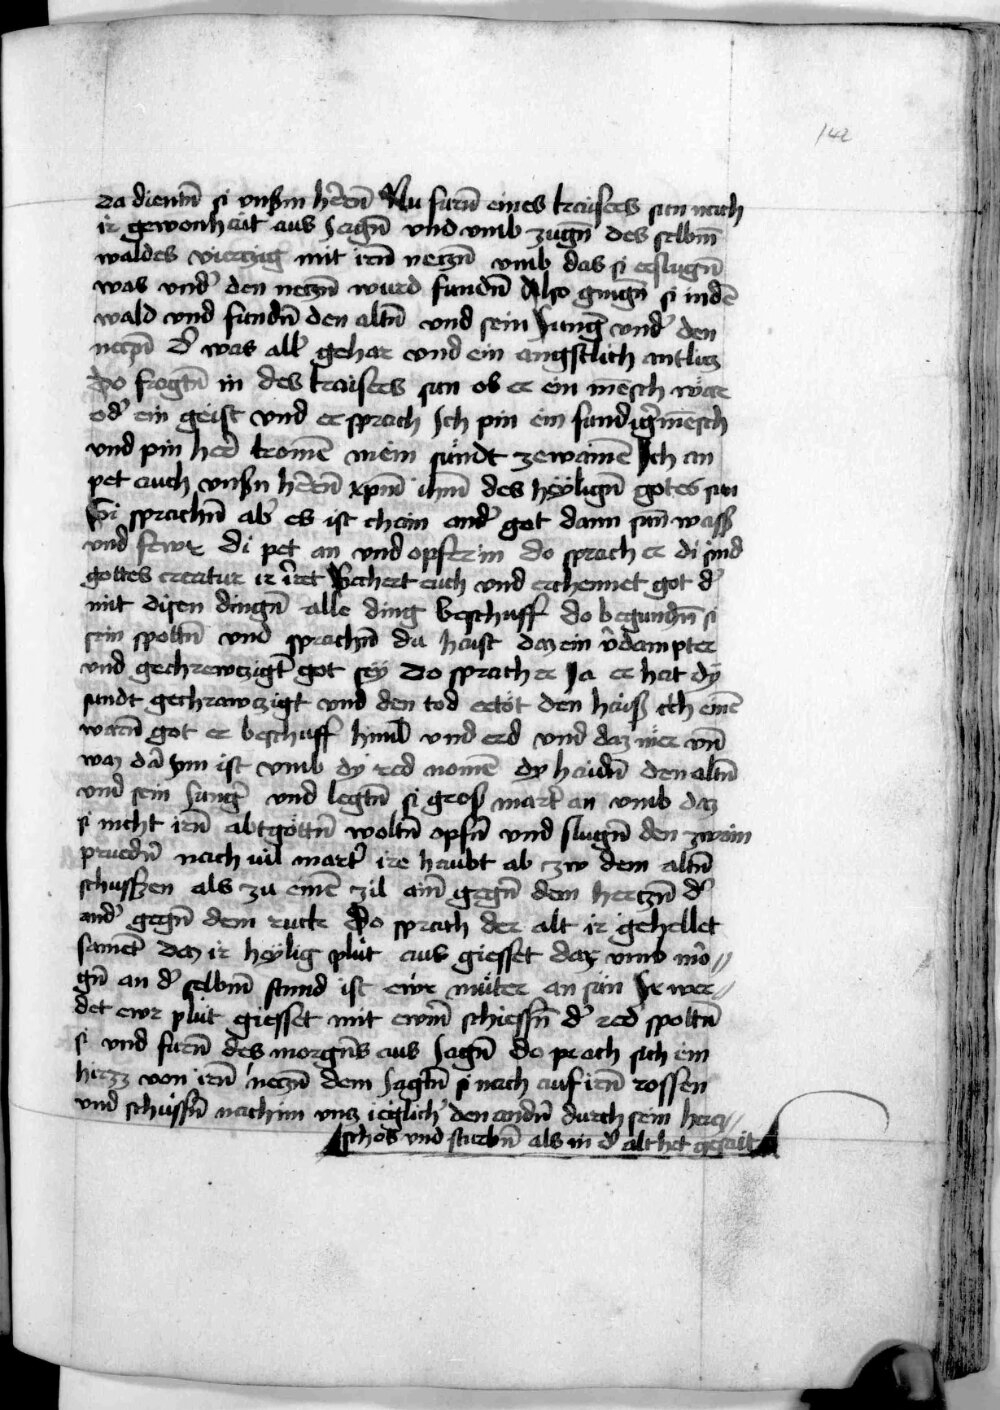 142
da dientn̄ si vnsṁ heꝛrn̄ Nu furn̄ eines kaisers sun nach
ir gewonhait aus Jagn̄ vnd vmb zugn̄ des selbm̄
waldes viertzig mit irn̄ netzn̄ vmb das si erslugn̄
was vnd̓ den netzn̄ wurd fundn̄ Also gingn̄ si in dē
wald vnd fundn̄ den altn̄ vnd sein Jung̓ vnd̓ den
netzn̄ d̓ was all̓ gehar vnd ein angstlich antlitz
Do fragtn̄ in des kaisers sun ob er ein mēsch wär
od̓ ein geist vnd er sprach Ich pin ein sundig̓ mēsch
vnd pin her komē mein sündt zewainē Ich an
pet auch vnsn̄ herrn̄ xpm̄ ihm̄ des heylign̄ gotes sun
Si sprachn̄ ab̓ es ist chain and̓ got dann sun̄ wass̓
vnd fewr di pet an vnd opfer in do sprach er di sind
gottes creatur ir irret Bechert euch vnd erchennet got d̓
mit disen dingn̄ alle ding beschuff do begundn̄ si
sein spottn̄ vnd sprachn̄ du haist daz ein v̓dampter
vnd gechrewczigt̓ got sey Do sprach er Ja er hat dy
sundt gechrawczigt vnd den tod ertöt den haiss ich einē
warn̄ got er beschuff himl̄ vnd erd vnd daz mer vn̄
waz dar ynn ist vmb dy red nomē dy haidn̄ den altn̄
vnd sein Jung̓ vnd legtn̄ si gros mart̓ an vmb daz
si nicht irn̄ abtgöttn̄ woltn̄ opfn̄ vnd slugn̄ den zwain
pruedn̄ nach uil mart̓ ire haubt ab czw dem altn̄
schussen als zu einē zil ain̄ gegn̄ dem hertzn̄ d̓
and̓ gegn̄ dem ruck Do sprach der alt ir gehellet
samēt daz ir heylig plüt aus giesset daz vmb mor⸗
gn̄ an d̓ selbm̄ stund ist ewr müter an sün Ir wer⸗
det ewr plüt giesset mit ewrm̄ schiessn̄ d̓ red spottn̄
si vnd furn̄ des morgn̄s aus Jagn̄ do prach sich ein
hirzz von irn̄ netzn̄ dem Jagtn̄ si nach auf irn̄ rossen
vnd schussn̄ nach im vnz ieglich̓ den andn̄ durch sein hercz⸗
schos vnd sturbn̄ als in d̓ alt het gesait